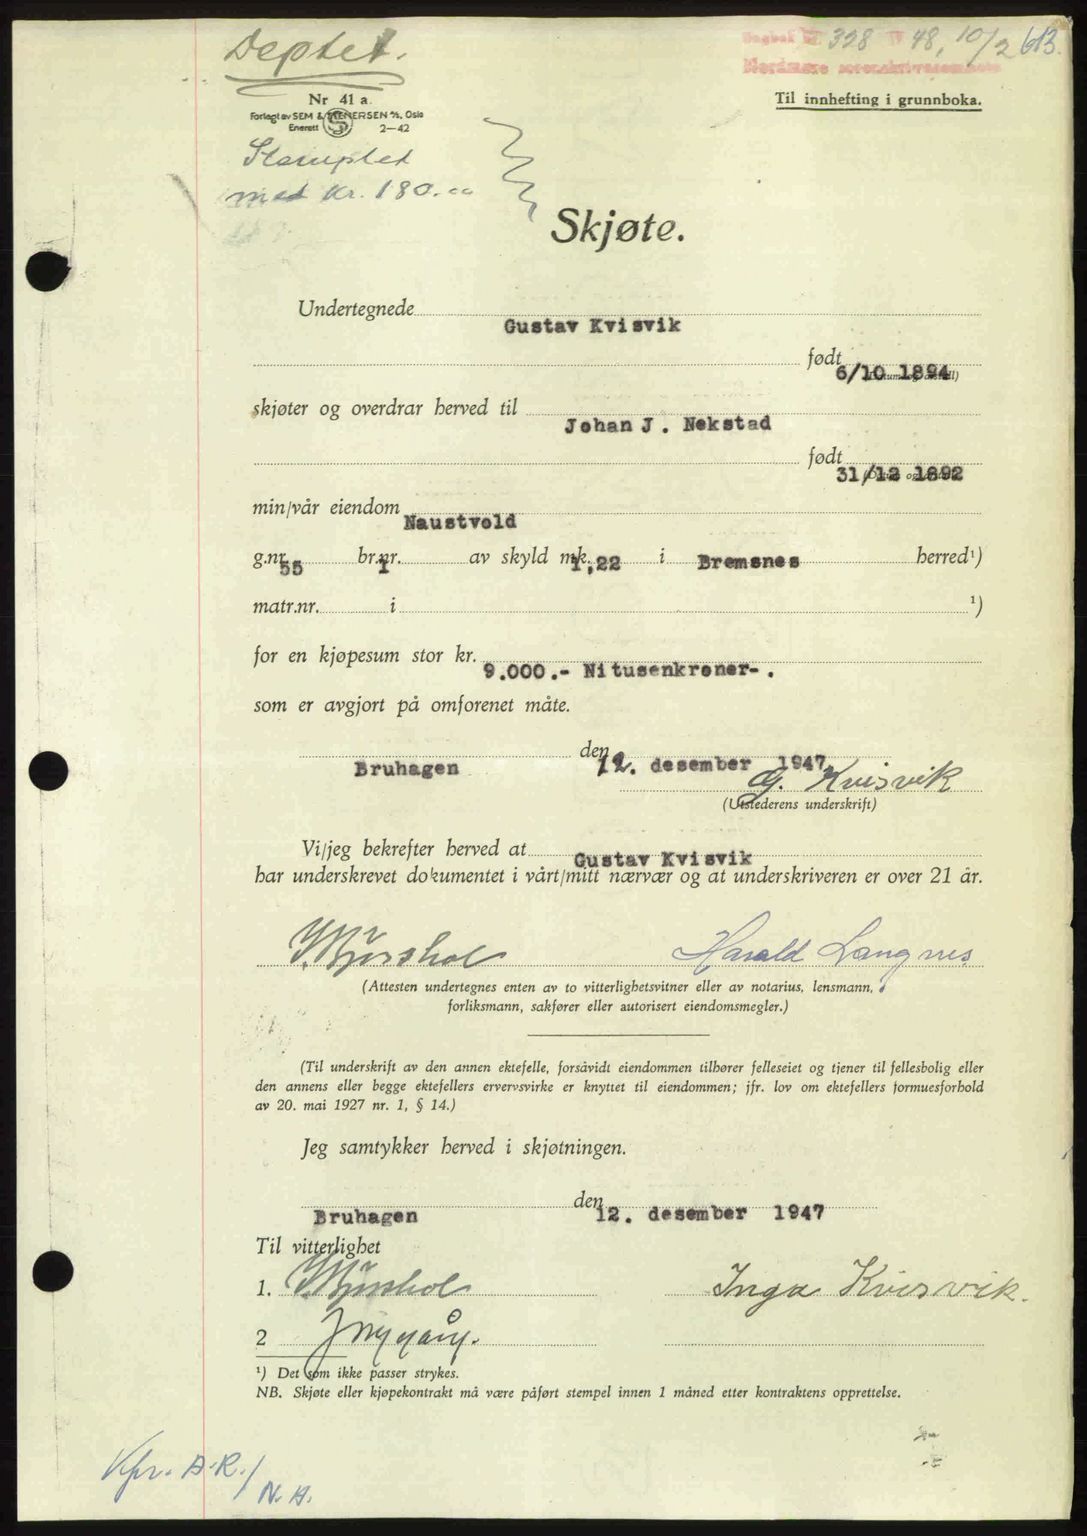 Deptet.
Dagbok nr 328 48, 10/2 613.
Nordmøre sorenskriverembete
Nr 41 a.
Forlagt av SEM & STENERSEN A/S, Oslo
Enerett 2—42
Til innhefting i grunnboka.
Stemplet
med kr. 180.00
Skjøte.
Undertegnede
Gustav Kvisvik
født
6/10 1894
skjøter og overdrar herved til
Johan J. Nekstad
født
31/12 1892
min/vår eiendom
Naustvold
g.nr. 55 br.nr. 1 av skyld mk. 1,22 i Bremsnes herred¹)
matr.nr. i ¹)
for en kjøpesum stor kr.
9.000.- Nitusenkroner-.
som er avgjort på omforenet måte.
Bruhagen den 12. desember 1947
G. Kvisvik
(Utstederens underskrift)
Vi/jeg bekrefter herved at Gustav Kvisvik
har underskrevet dokumentet i vårt/mitt nærvær og at underskriveren er over 21 år.
Harald Langnes
(Attesten undertegnes enten av to vitterlighetsvitner eller av notarius, lensmann,
forliksmann, sakfører eller autorisert eiendomsmegler.)
(Til underskrift av den annen ektefelle, forsåvidt eiendommen tilhører felleseiet og tjener til fellesbolig eller
den annens eller begge ektefellers ervervsvirke er knyttet til eiendommen; jfr. lov om ektefellers formuesforhold
av 20. mai 1927 nr. 1, § 14.)
Jeg samtykker herved i skjøtningen.
Bruhagen den 12. desember 1947
Til vitterlighet
1. Inga Kvisvik.
2
¹) Det som ikke passer strykes.
NB. Skjøte eller kjøpekontrakt må være påført stempel innen 1 måned etter kontraktens opprettelse.
Kpr. A.R./
N.A.